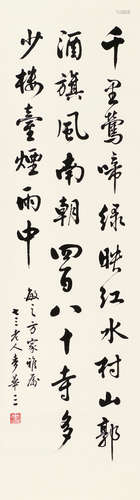 千里鶯啼綠映紅水村山郭
酒旗風南朝四百八十寺多
少樓臺煙雨中
敏之方家雅屬
老人